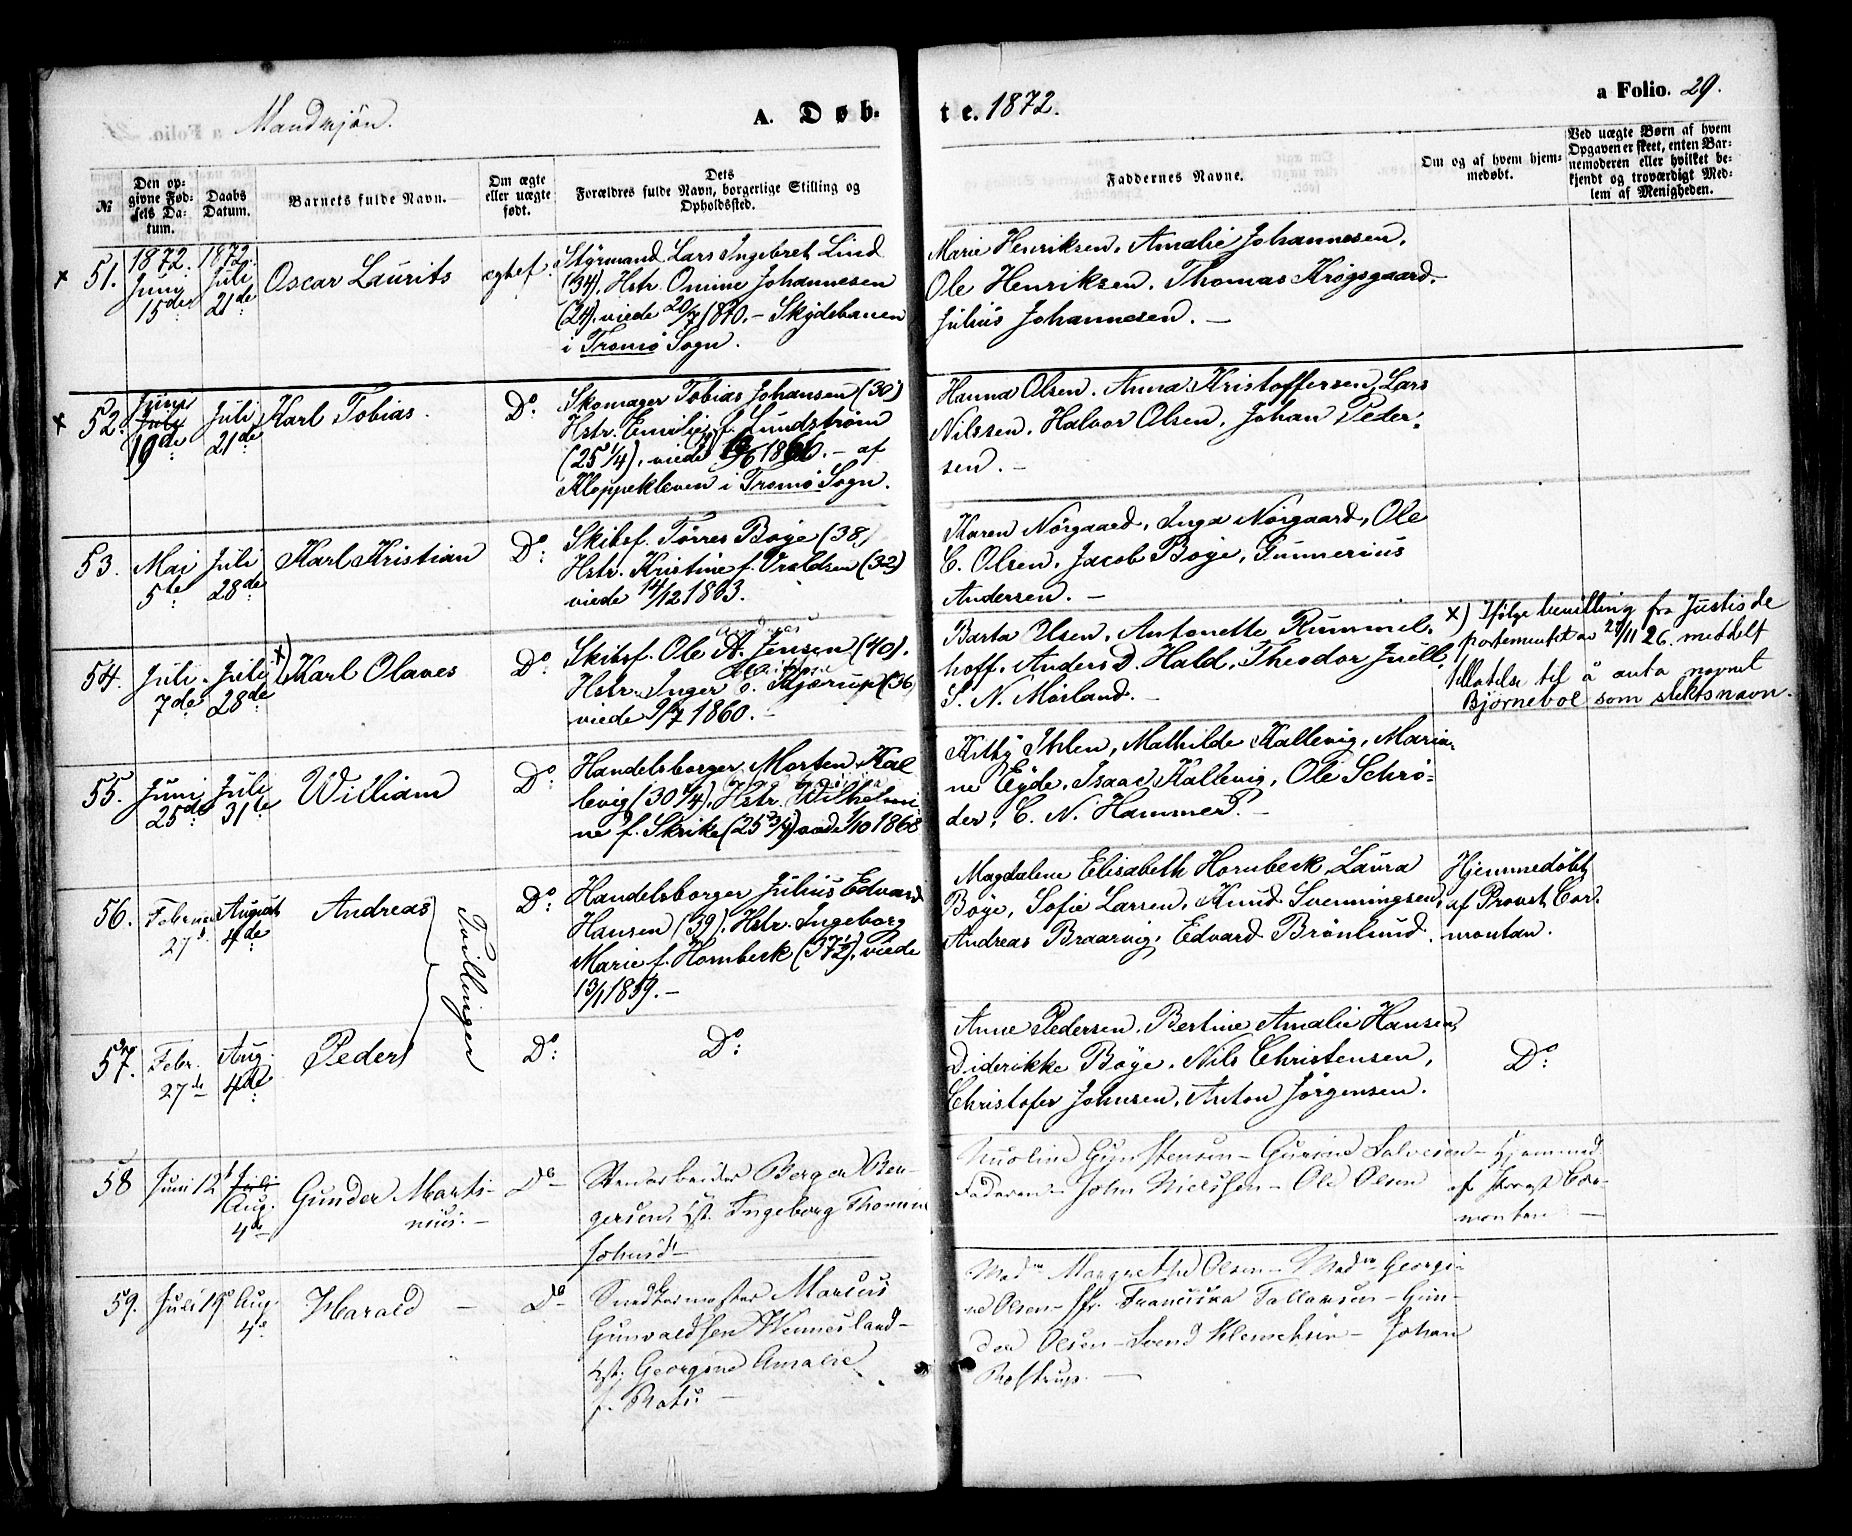 Mandkjøn.
A. Døbte. 1872.
a Folio. 29.
№
Den op-
givne Fød-
sels Da-
tum.
Daabs
Datum.
Barnets fulde Navn.
Om ægte
eller uægte
født.
Dets
Forældres fulde Navn, borgerlige Stilling og
Opholdssted.
Faddernes Navne.
Om og af hvem hjem-
medøbt.
Ved uægte Børn af hvem
Opgaven er skeet, enten Bar-
nemoderen eller hvilket be-
kjendt og troværdigt Med-
lem af Menigheden.
x 51.
1872.
Juny
15de
1872.
Juli
21de
Oscar Laurits
ægtef.
Styrmand Lars Ingebret Lind
(34), Hstr. Omine Johannesen
(24). viede 20/7 1870. – Skydebanen
i Tromø Sogn.
Marie Henriksen, Amalie Johannesen,
Ole Henriksen, Thomas Krøgsgaard.
Julius Johannesen. –
x 52.
Juny
July
19de
Juli
21de
Karl Tobias.
Do:
Skomager Tobias Johansen (30)
Hstr. Emilie f. Lundstrøm
(25 1/4), viede /6 1866. – af
Kloppekleven i Tromø Sogn.
Hanna Olsen, Anna Kristoffersen, Lars
Nilssen, Halvor Olsen, Johan Peder-
sen. –
53.
Mai
5te
Juli
28de
Karl Kristian
Do:
Skibsf. Tørres Boye (38)
Hstr. Kristine f. Oraldsen (32)
viede 14/12 1863.
Karen Nørgaard, Inga Nørgaard, Ole
C. Olsen, Jacob Boye, Gunnerius
Andersen. –
54.
Juli
7de
Juli
28de
x) Karl Olaves
Do:
Andreas
Skibsf. Ole A. Jensen (40).
Hstr. Inger Kjærup (36)
viede 9/7 1860. –
Barta Olsen, Antonette Rummel-
hoff, Anders D. Hald, Theodor Juell,
S. N. Mørland. –
x) Ifølge bevilling fra Justisde
partementet av 27/11 26. meddelt
tillatelse til å anta navnet
Bjørneboe som slektsnavn.
55.
Juni
25de
Juli
31te
William
Do:
Handelsborger Morten Kal
levig (30 1/4), Hstr. Wilhelmi
ne f. Skrike (25 3/4) viede 1/10 1868
Kitty Ihlen, Mathilde Kallevig, Maria-
ne Eyde, Isaac Kallevig, Ole Schrø-
der, C. N. Hammer. –
56.
Februar
27
August
4de
Andreas
Tvillinger
Do:
Handelsborger Julius Edvard
Hansen (39), Hstr. Ingeborg
Marie f. Hornbeck (37 1/2), viede
13/1 1859. –
Magdalene Elisabeth Hornbeck, Laura
Boye, Sofie Larsen, Knud Svenningsen,
Andreas Braarvig, Edvard Brønlund.
Hjemmedøbt
af Provst Cor-
montan.
57.
Febr.
27de
Aug.
4de
Peder
Do:
Do:
Anne Pedersen, Bertine Amalie Hansen,
Diderikke Boye, Nils Christensen,
Christofer Johnsen, Anton Jørgensen.
Do:
58
Juni 12
Juli
Aug.
4de
Gunder Marti-
nius. –
Do
Stenarbeider Berger Ber-
gersen, Hst. Ingeborg Thomine
Johnsd
Gunstensen – Gurine Salvesen –
Faderen – John Nielssen – Ole Olsen
Hjemmed
af Provst Cor-
montan –
59.
Juli 19
Aug.
4de
Harald –
Do
Snedkermester Marius
Gunvaldsen Wennesland –
Hst. Georgine Amalie
f. Rots –
Mad Margrethe Olsen – Mad Georgi-
ne Olsen – Fr. Franciska Tallaksen – Gun-
der Olsen – Svend Klemetsen – Johan
Rostrup. –